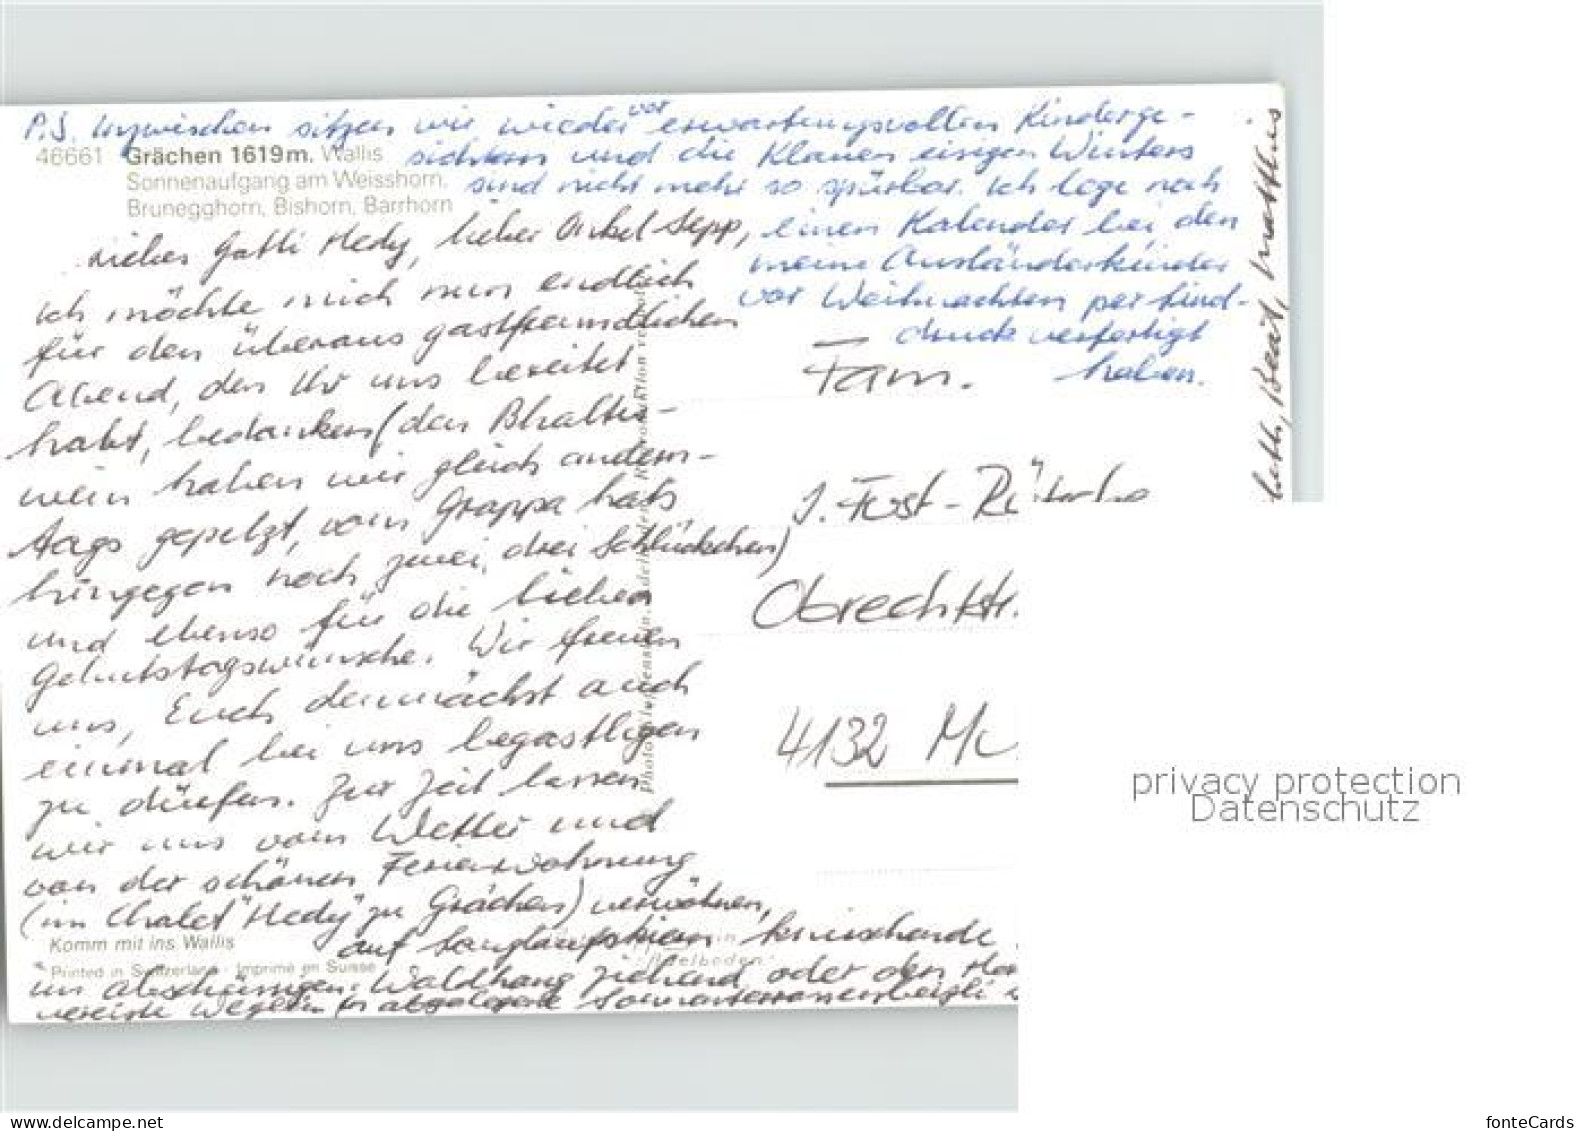 P.S. Inzwischen sitzen wir wieder vor erwartungsvollen Kinderge-
sichtern und die Klauen eisigen Winters
sind nicht mehr so spürbar. Ich lege noch
einen Kalender bei den
meine Ausländerkinder
vor Weihnachten per Lind-
druck verfertigt
haben.
46661 Grächen 1619 m. Wallis
Sonnenaufgang am Weisshorn,
Brunegghorn, Bishorn, Barrhorn
Liebes Gotti Hedy, lieber Onkel Sepp,
Ich möchte mich nun endlich
für den überaus gastfreundlichen
Abend, den Ihr uns bereitet
habt, bedanken (den Bhaltis-
wein haben wir gleich andern-
tags gepelzt, vom Grappa hats
hingegen noch zwei, drei Schlückchen)
und ebenso für die lieben
Geburtstagswünsche. Wir freuen
uns, Euch demnächst auch
einmal bei uns begastligen
zu dürfen. Zur Zeit lassen
wir uns vom Wetter und
von der schönen Ferienwohnung
(im Chalet "Hedy" zu Grächen) verwöhnen,
auf Langlaufskiern knirschende
Komm mit ins Wallis
Printed in Switzerland · Imprimé en Suisse
Adelboden
im abschüssigen Waldhang ziehend oder den
vereiste Weglein abgelegene
Fam.
J. Fust-
Obrechtstr.
4132
Beat, Mathias
privacy protection
Datenschutz
www.delcampe.net
fonteCards